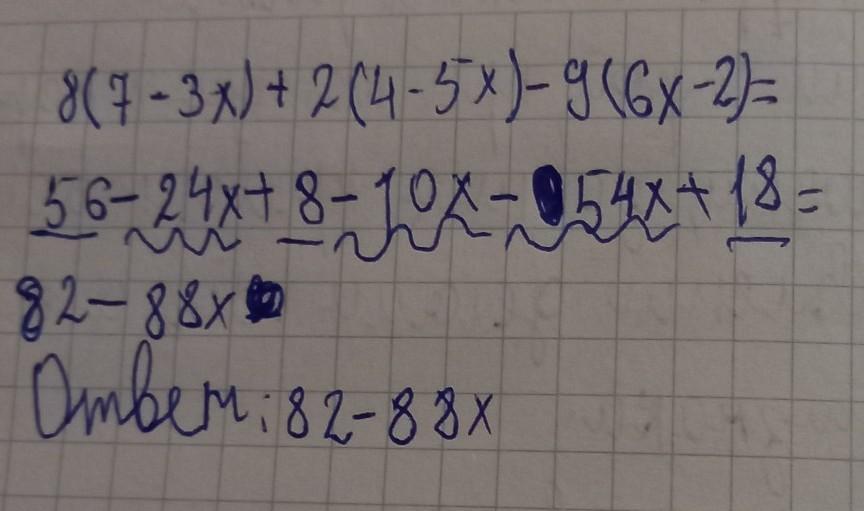 8(7-3x)+2(4-5x)-9(6x-2)=
56-24x+8-10x-54x+18=
82-88x
Ответ: 82-88x